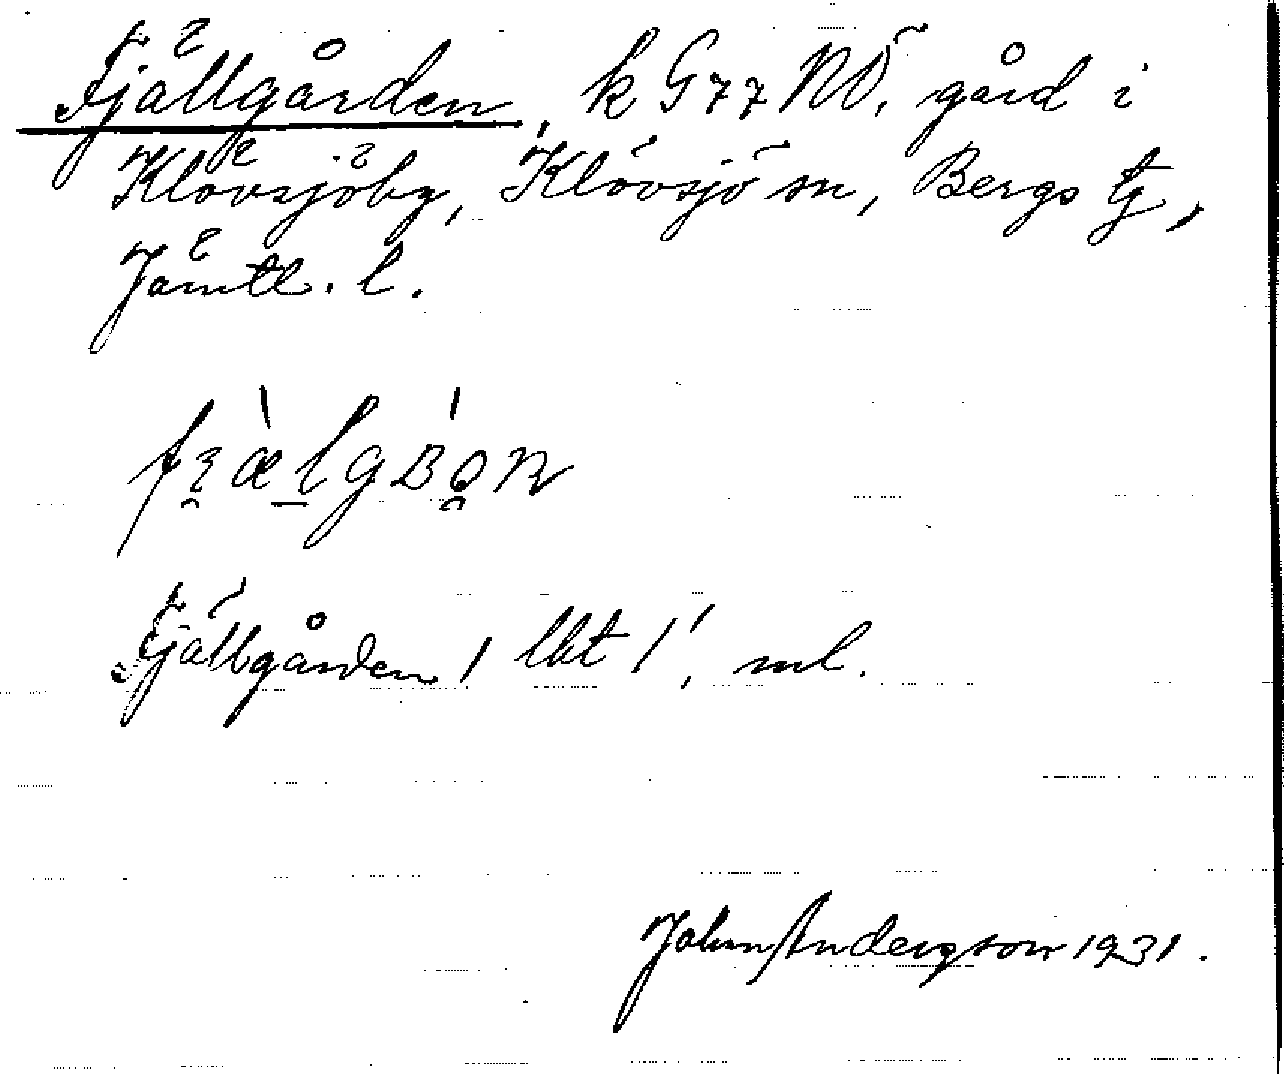 Fjällgården, k G77 NÖ, gård i
Klövsjöby, Klövsjö sn, Bergs tg,
Jämtl. l.
Fjällgården / lkt /, ml.
John Andersson 1931.